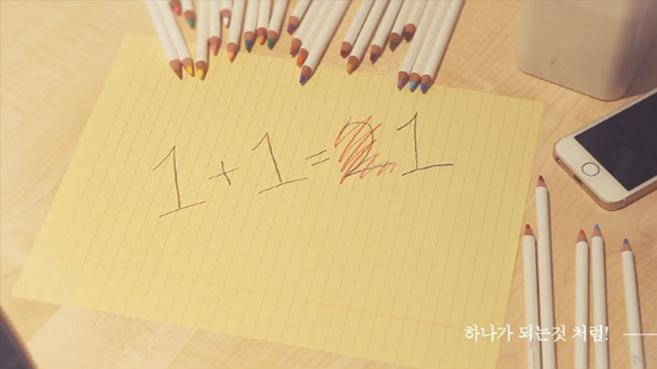 1 + 1 = 2 1
하나가 되는것 처럼!